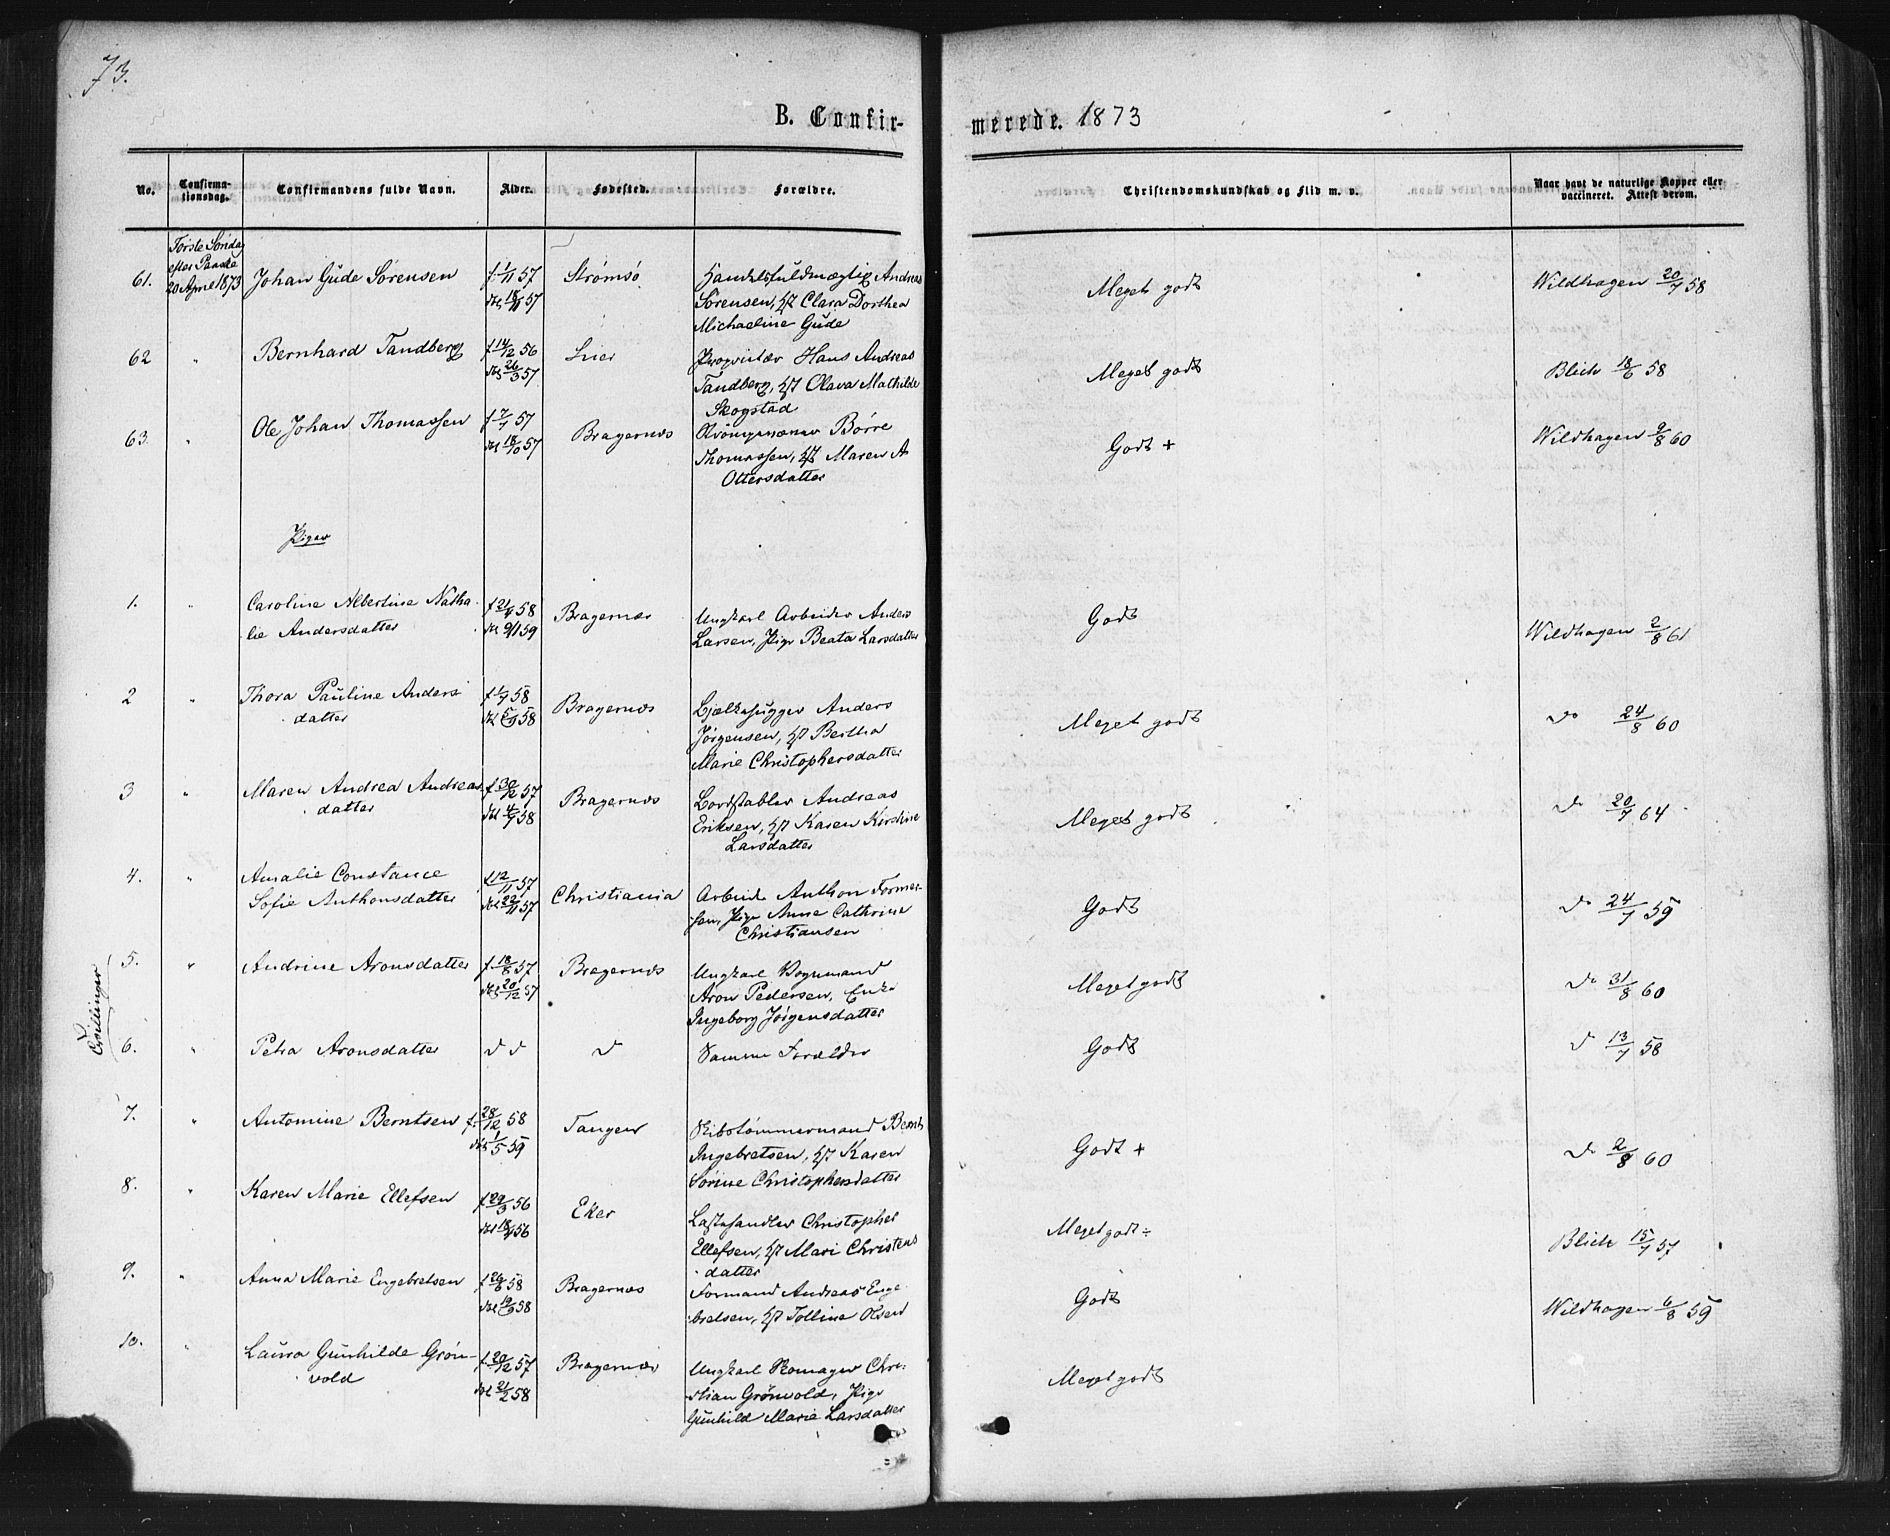 73.
B. Confir-
merede. 1873
No.
Confirma-
tionsdag.
Confirmandens fulde Navn.
Alder.
Fødested.
Forældre.
Christendomskundskab og Flid m. v.
Naar havt de naturlige Kopper eller
vaccineret. Attest derom.
61.
Første Søndag
efter Paaske
20 April 1873
Johan Gude Sørensen
f. 1/11 57
18/11 57
Strømsø
Handelsfuldmægtig Andreas
Sørensen, Clara Dorthea
Michaeline Gude
Meget godt
Wildhagen 20/7 58
62
"
Bernhard Tandberg
f 14/12 56
26/3 57
Lier
Proprietær Hans Andreas
Tandberg, Olava Mathilde
Skogstad
Meget godt
Blich 18/6 58
63.
"
Ole Johan Thomassen
f 7/7 57
18/10 57
Bragernæs
Børre
Thomassen, Maren A
Ottersdatter
Godt +
Wildhagen 9/8 60
Piger
1.
"
Caroline Albertine Natha-
lie Andersdatter
58
59
Bragernæs
Ungkarl Arbeider Anders
Larsen, Pige Beata Larsdatter
Godt
Wildhagen 2/8 61
2
"
Thora Pauline Anders
datter
58
58
Bragernæs
Bjælkehugger Anders
Jørgensen, Bertha
Marie Christophersdatter
Meget godt
Do 24/8 60
3
"
Maren Andrea Andreas
datter
f 30/12 57
58
Bragernæs
Bordstabler Andreas
Eriksen, Karen Kirstine
Larsdatter
Meget godt
Do 20/7 64
4.
"
Amalie Constance
Sofie Anthonsdatter
f 12/11 57
22/11 57
Christiania
Arbeider Anthon Tormer-
sen, Pige Anne Cathrine
Christiansen
Godt
Do 24/7 59
Tvillinger
5.
"
Andrine Aronsdatter
f. 18/8 57
20/12 57
Bragernæs
Ungkarl Vognmand
Aron Pedersen, Enke
Ingeborg Jørgensdatter
Meget godt
Do 31/8 60
6.
"
Petra Aronsdatter
d d
d
Samme Forældre
Godt
D 13/7 58
7.
"
Antomine Berntsen
f. 28/12 58
1/5 59
Tangen
Skibstømmermand Bernt
Ingebretsen, Karen
Sørine Christophersdatter
Godt +
Do 2/8 60
8.
"
Karen Marie Ellefsen
f 29/3 56
56
Eker
Lastehandler Christopher
Ellefsen, Mari Christens
datter
Meget godt ÷
Blich 15/7 57
9.
"
Anna Marie Engebretsen
f 58
58
Bragernæs
Formand Andreas Enge
bretsen, Tolline Olsen
Godt
Wildhagen 6/8 59
10.
"
Laura Gunhilde Grøn-
vold
f. 20/12 57
21/2 58
Bragernæs
Ungkarl Skomager Chri-
stian Grønvold, Pige
Gunhild Marie Larsdatter
Meget godt